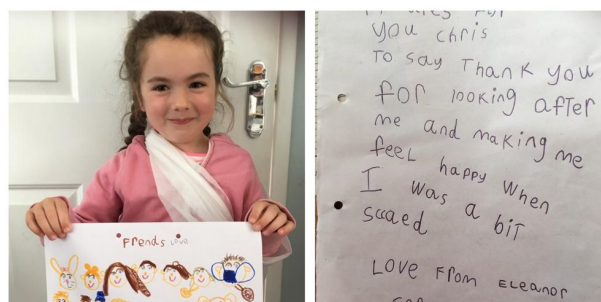 Frends Love
you chris
To say Thank you
for looking after
me and making me
feel happy when
I was a bit
scaed
Love From Eleanor